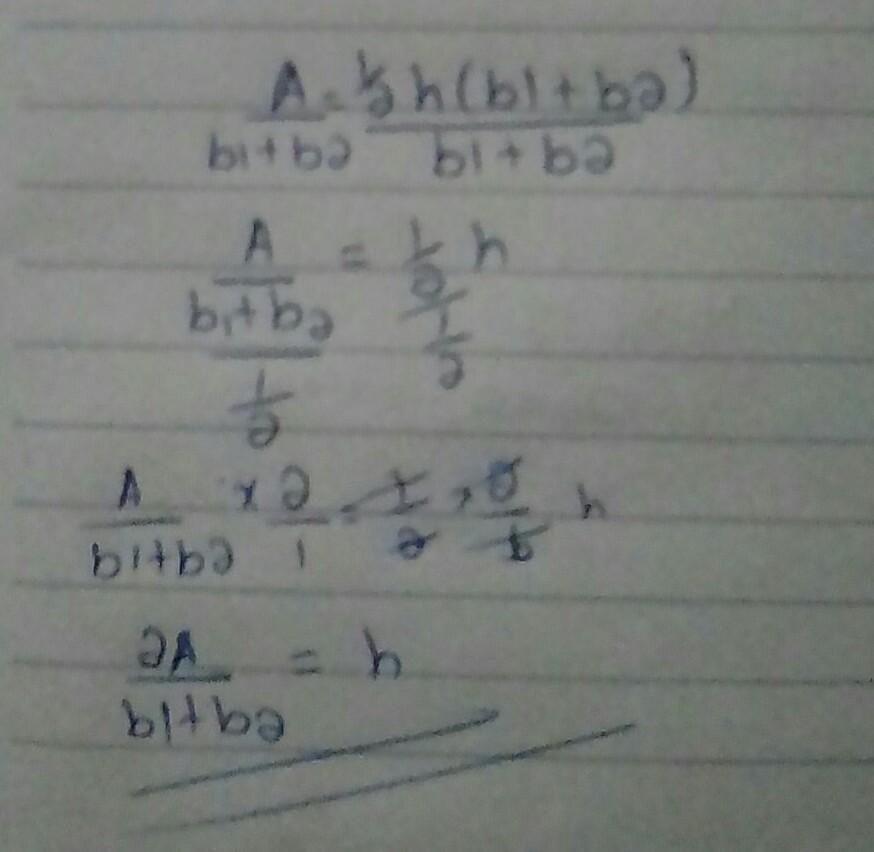 A/(b1+b2) = ½h(b1+b2)/(b1+b2)
(A/(b1+b2))/(1/2) = (1/2)/(1/2) h
A/(b1+b2) × 2/1 = 1/2 × 2/1 h
2A/(b1+b2) = h